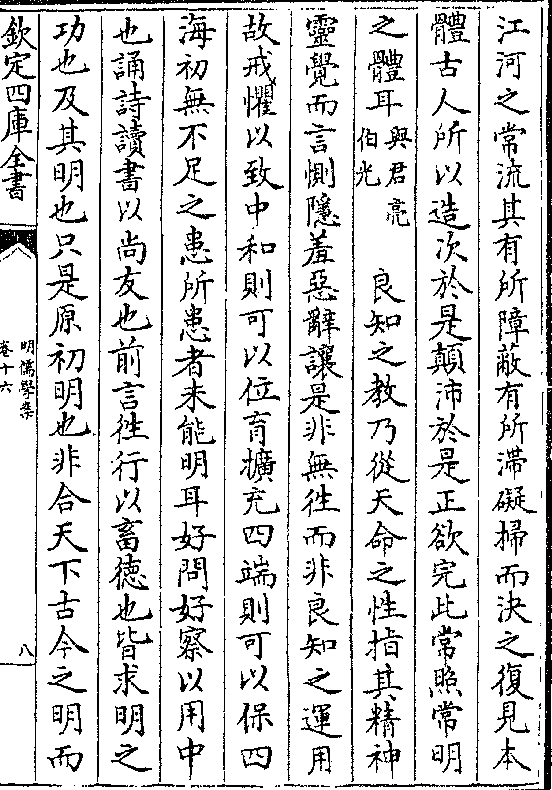 江河之常流其有所障蔽有所滞礙掃而決之復見本
體古人所以造次於是顛沛於是正欲完此常照常明
之體耳與君亮伯光　良知之教乃從天命之性指其精神
靈覺而言惻隱羞惡辭讓是非無徃而非良知之運用
故戒懼以致中和則可以位育擴充四端則可以保四
海初無不足之患所患者未能明耳好問好察以用中
也誦詩讀書以尚友也前言徃行以畜德也皆求明之
功也及其明也只是原初明也非合天下古今之明而
欽定四庫全書
明儒學案
卷十六
八